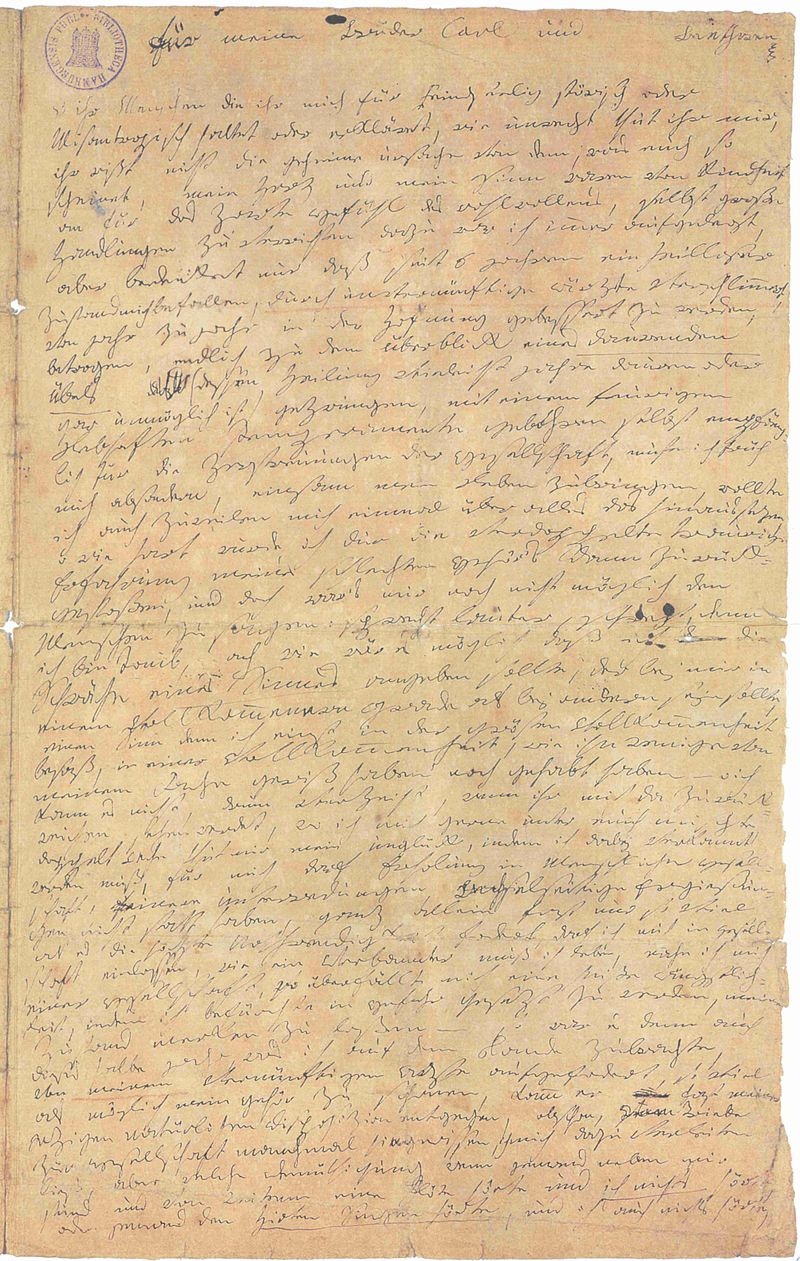 BIBLIOTHECA HAMBURGENSIS PUBL.
für meine Brüder Carl und Beethowen
o ihr Menschen die ihr mich für Feindseelig störisch oder
Misantropisch haltet oder erkläret, wie unrecht thut ihr mir,
ihr wißt nicht die geheime ursache von dem, was euch so
scheinet, mein Herz und mein Sinn waren von Kindheit
an für das Zarte Gefühl des wohlwollens, selbst große
Handlungen zu verrichten dazu war ich immer aufgelegt,
aber bedenket nur daß seit 6 jahren ein heilloser
Zustand mich befallen, durch unvernünftige ärzte verschlimmert,
von jahr zu jahr in der Hofnung gebessert zu werden,
betrogen, endlich zu dem überblick eines daurenden
übels (dessen Heilung vieleicht jahre dauren oder
gar unmöglich ist) gezwungen, mit einem feurigen
Lebhaften Temperamente gebohren selbst empfäng-
lich für die Zerstreuungen der Gesellschaft, muste ich früh
mich absondern, einsam mein Leben zubringen, wollte
ich auch zuweilen mich einmal über alles das hinaussezen,
o wie hart wurde ich dur die verdoppelte traurige
Erfahrung meines schlechten Gehör's dann zurück-
gestoßen, und doch war's mir noch nicht möglich den
Menschen zu sagen: sprecht lauter, schreyt, denn
ich bin Taub, ach wie wär es möglich daß ich die
Schwäche eines Sinnes angeben sollte, der bey mir in
einem Vollkommenern grade als bey andern seyn sollte,
einen Sinn den ich einst in der grösten Vollkommenheit
besaß, in einer Vollkommenheit, wie ihn wenige von
meinem Fache gewiß haben noch gehabt haben — o ich
kann es nicht, drum verzeiht, wenn ihr mich da zurück-
weichen sehen werdet, wo ich mich gerne unter euch mischte
doppelt wehe thut mir mein unglück, indem ich dabey verkannt
werden muß, für mich darf Erholung in Menschlicher Gesell-
schaft, feinere unterredungen, Wechselseitige Ergießun-
gen nicht statt haben, ganz allein fast nur so viel
als es die höchste Nothwendigkeit fodert darf ich mich in gesell-
schaft einlassen, wie ein Verbannter muß ich leben, nahe ich mich
einer Gesellschaft, so überfällt mich eine heiße ängstlich-
keit, indem ich befürchte in Gefahr gesezt zu werden, meinen
Zustand merken zu laßen — so war es denn auch
dieses halbe jahr, was ich auf dem Lande zubrachte,
von meinem Vernünftigen Arzte aufgefodert, so viel
als möglich mein Gehör zu schonen, kamm er fast meiner
jezigen natürlichen Disposizion entgegen, obschon, vom Triebe
zur Gesellschaft manchmal hingerissen, ich mich dazu verleiten
ließ, aber welche Demüthigung wenn jemand neben mir
stund und von weitem eine Flöte hörte und ich nichts hörte
oder jemand den Hirten Singen hörte, und ich auch nichts hörte,